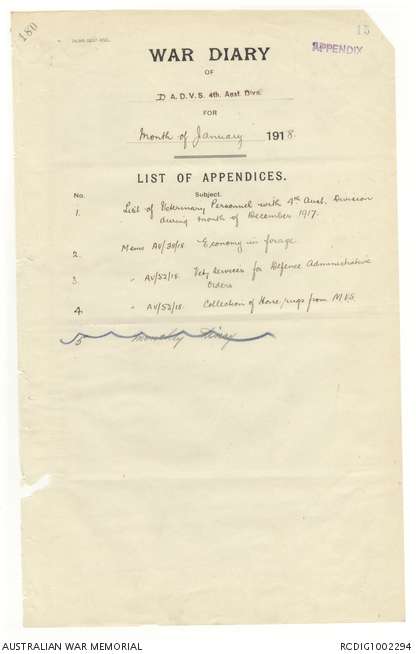 180
15
APPENDIX
WAR DIARY
OF
D A.D.V.S. 4th. Aust. Divn.
FOR
Month of January 1918.
LIST OF APPENDICES.
No. Subject.
1. List of Veterinary Personnel with 4th Aust. Division
during month of December 1917.
2. Memo AV/30/18. Economy in forage.
3. " AV/52/18. Vety Services for Defence Administrative
Orders
4. " AV/53/18. Collection of Horse rugs from M.V.S.
5 Monthly Diary
AUSTRALIAN WAR MEMORIAL
RCDIG1002294